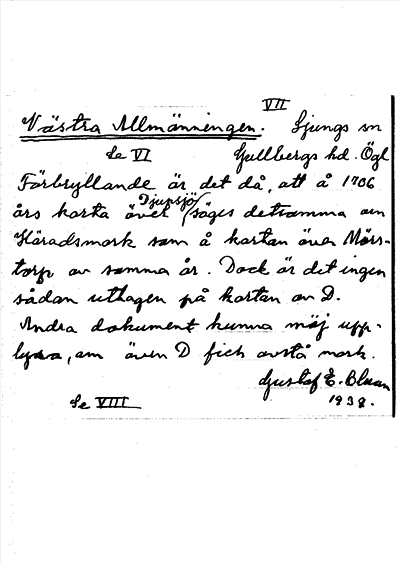 VII
Västra Allmänningen. Ljungs sn
Se VI Gullbergs hd. Ögl
Förbryllande är det då, att å 1706
års karta över Djupsjö säges detsamma om
Häradsmark som å kartan över Mårs-
torp av samma år. Dock är det ingen
sådan uthagen på kartan av D.
Andra dokument kunna möj upp-
lysa, om även D fick avstå mark.
Gustaf E. Blman
Se VIII 1938.